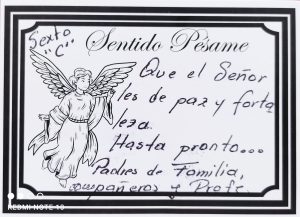 Sexto
"C"
Sentido Pésame
Que el Señor
les de paz y forta
leza.
Hasta pronto...
Padres de Familia,
compañeros y Profe.
REDMI NOTE 10